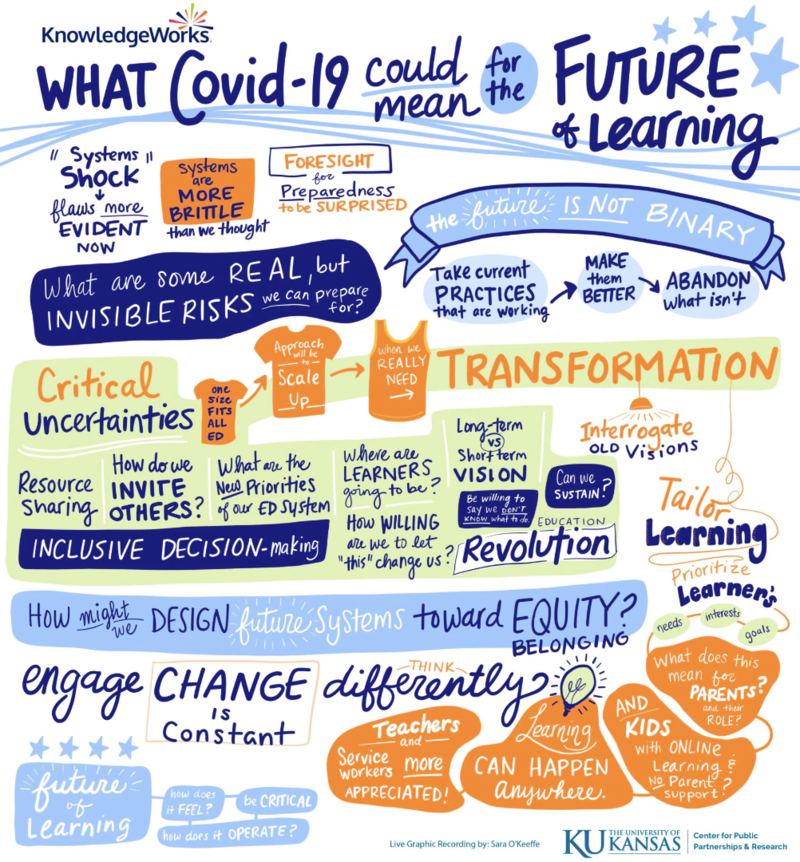 KnowledgeWorks.
WHAT Covid-19 could mean for the FUTURE of Learning
"Systems"
SHOCK
flaws more
EVIDENT
NOW
Systems
are
MORE
BRITTLE
than we thought
FORESIGHT
for
Preparedness
to be SURPRISED
the future IS NOT BINARY
Take current
PRACTICES
that are working
MAKE
them
BETTER
ABANDON
what isn't
What are some REAL, but
INVISIBLE RISKS we can prepare
for?
Critical
Uncertainties
ONE
SIZE
FITS
ALL
ED
Approach
will be
to
Scale
Up
when we
REALLY
NEED
TRANSFORMATION
Interrogate
OLD Visions
Resource
Sharing
How do we
INVITE
OTHERS?
What are the
New Priorities
of our ED System
Where are
LEARNERS
going to be?
Long-term
vs
Short term
VISION
Be willing to
say we DON'T
KNOW what to do.
Can we
SUSTAIN?
INCLUSIVE DECISION-making
How WILLING
are we to let
"this" change us?
EDUCATION
Revolution
Tailor
Learning
Prioritize
Learner's
needs
interests
goals
How might we DESIGN future Systems toward EQUITY?
BELONGING
engage CHANGE
is
Constant
THINK
differently
What does this
mean for
PARENTS?
and their
ROLE?
Teachers
and
Service
workers more
APPRECIATED!
Learning
CAN HAPPEN
anywhere.
AND
KIDS
with ONLINE
Learning &
No Parent
Support?
future
of
Learning
how does
it FEEL?
be CRITICAL
how does it OPERATE?
Live Graphic Recording by: Sara O'Keeffe
KU THE UNIVERSITY OF
KANSAS
Center for Public
Partnerships & Research